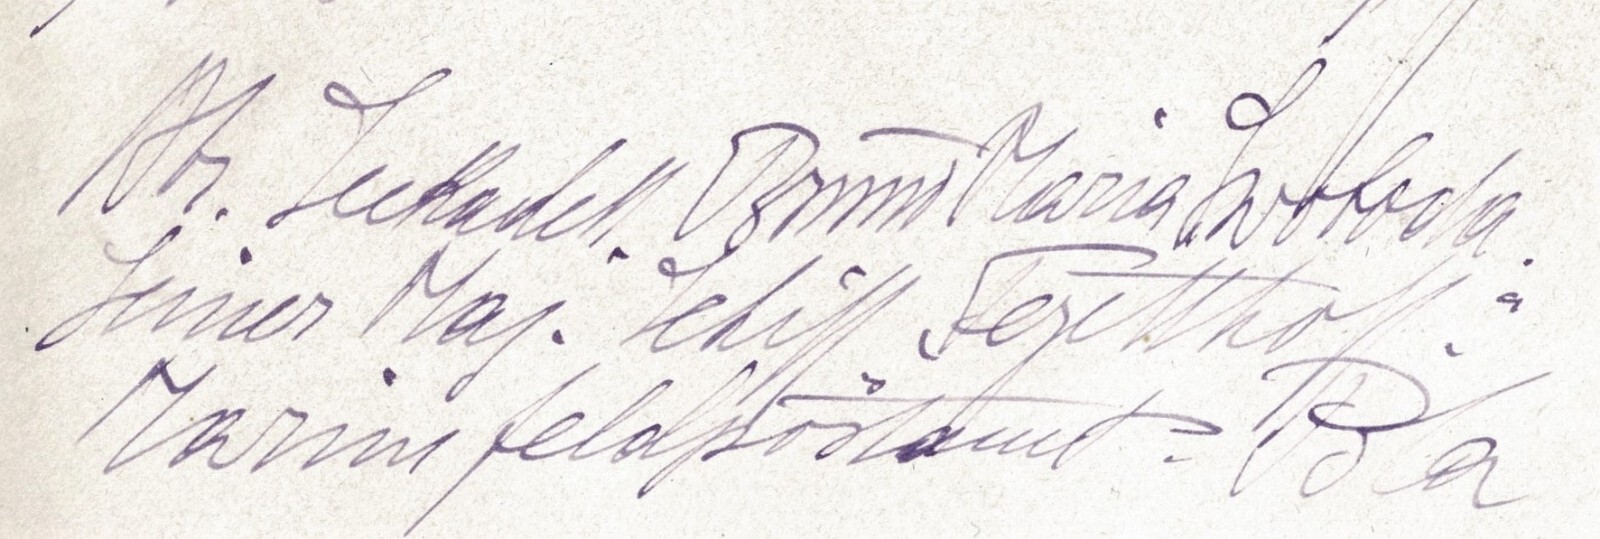 Abs. Seekadett Bruno Maria Swoboda
Seiner Maj. Schiff „Tegetthoff."
Marinefeldpostamt: Pola